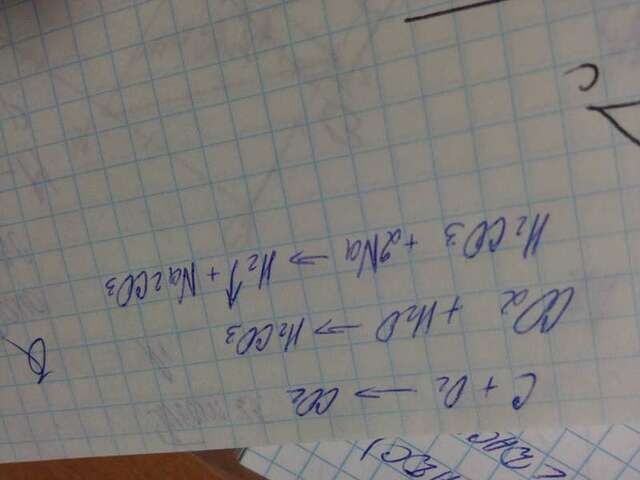 C + O₂ → CO₂
CO₂ + H₂O → H₂CO₃
H₂CO₃ + 2Na → H₂↑ + Na₂CO₃
C